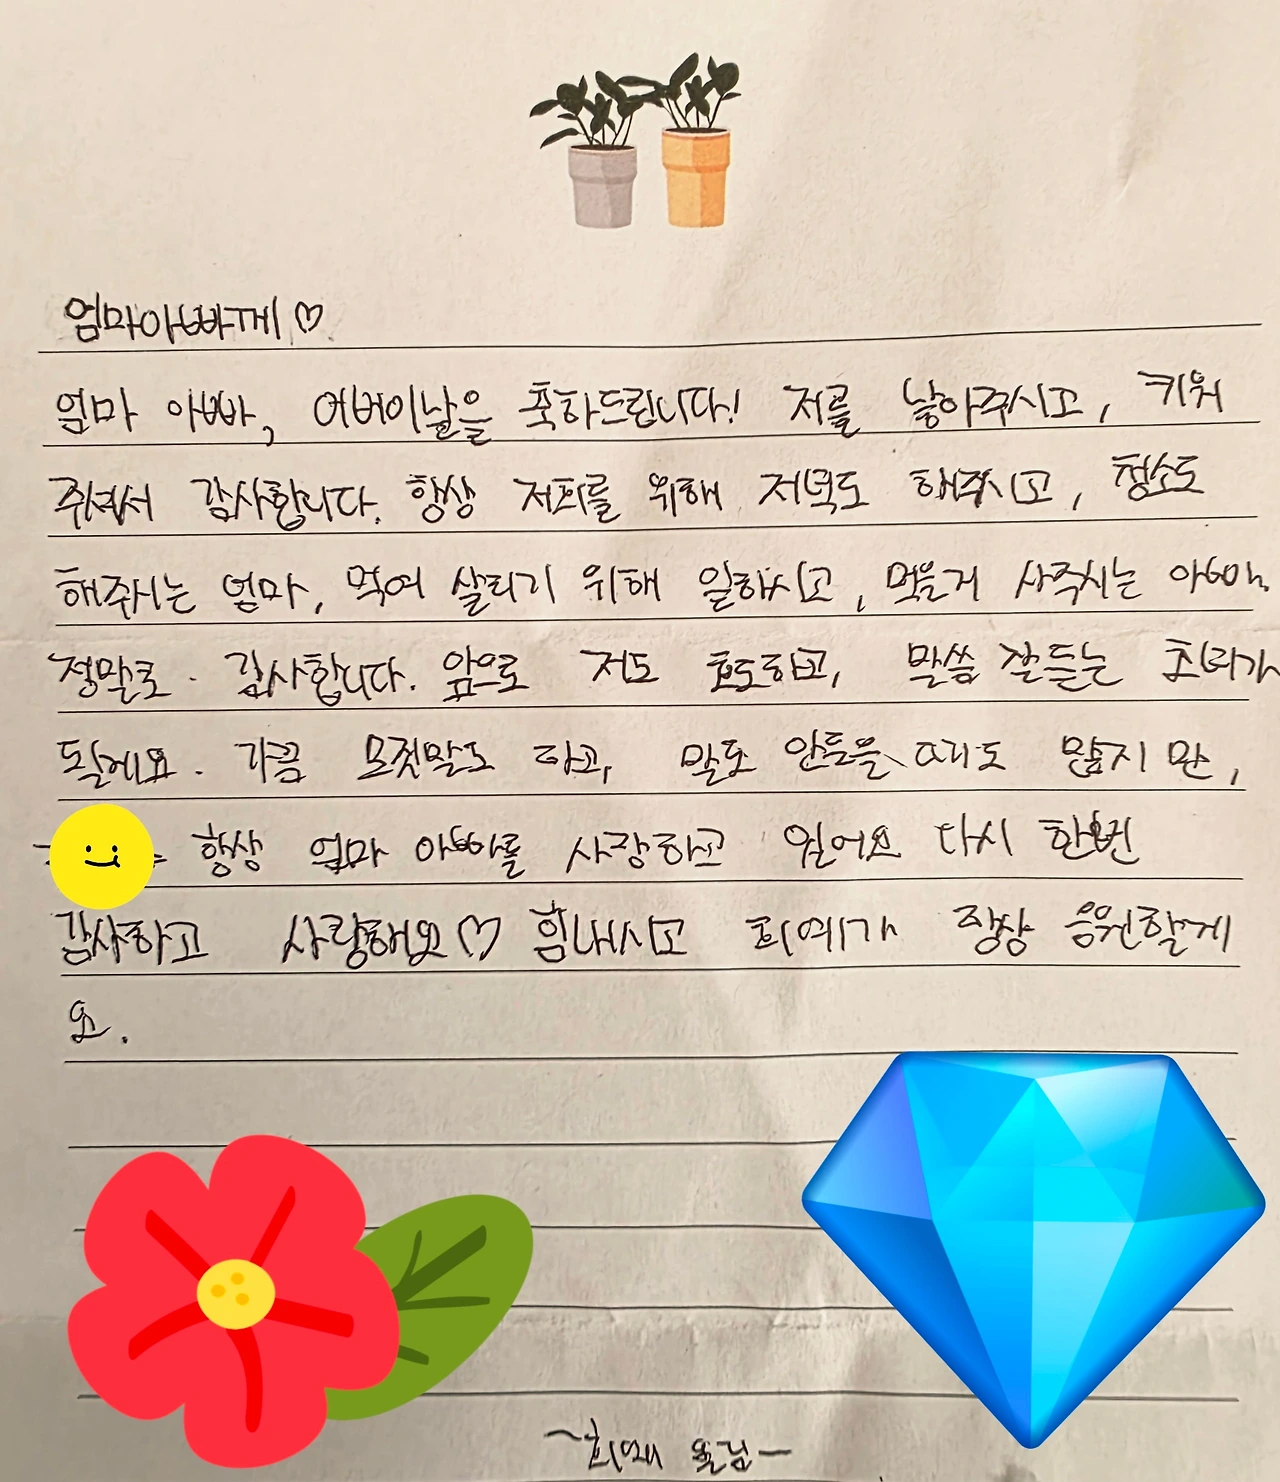 엄마아빠께♡
엄마 아빠, 어버이날을 축하드립니다! 저를 낳아주시고, 키워
주셔서 감사합니다. 항상 저희를 위해 저녁도 해주시고, 청소도
해주시는 엄마, 먹여 살리기 위해 일하시고, 먹을거 사주시는 아빠
정말로 감사합니다. 앞으로 저도 효도하고, 말씀 잘듣는
될게요. 가끔 모진말도 하고, 말도 안들을 때도 많지만,
항상 엄마 아빠를 사랑하고 있어요 다시 한번
감사하고 사랑해요♡ 힘내시고 희애가 항상 응원할게
요.
~희애 올림-